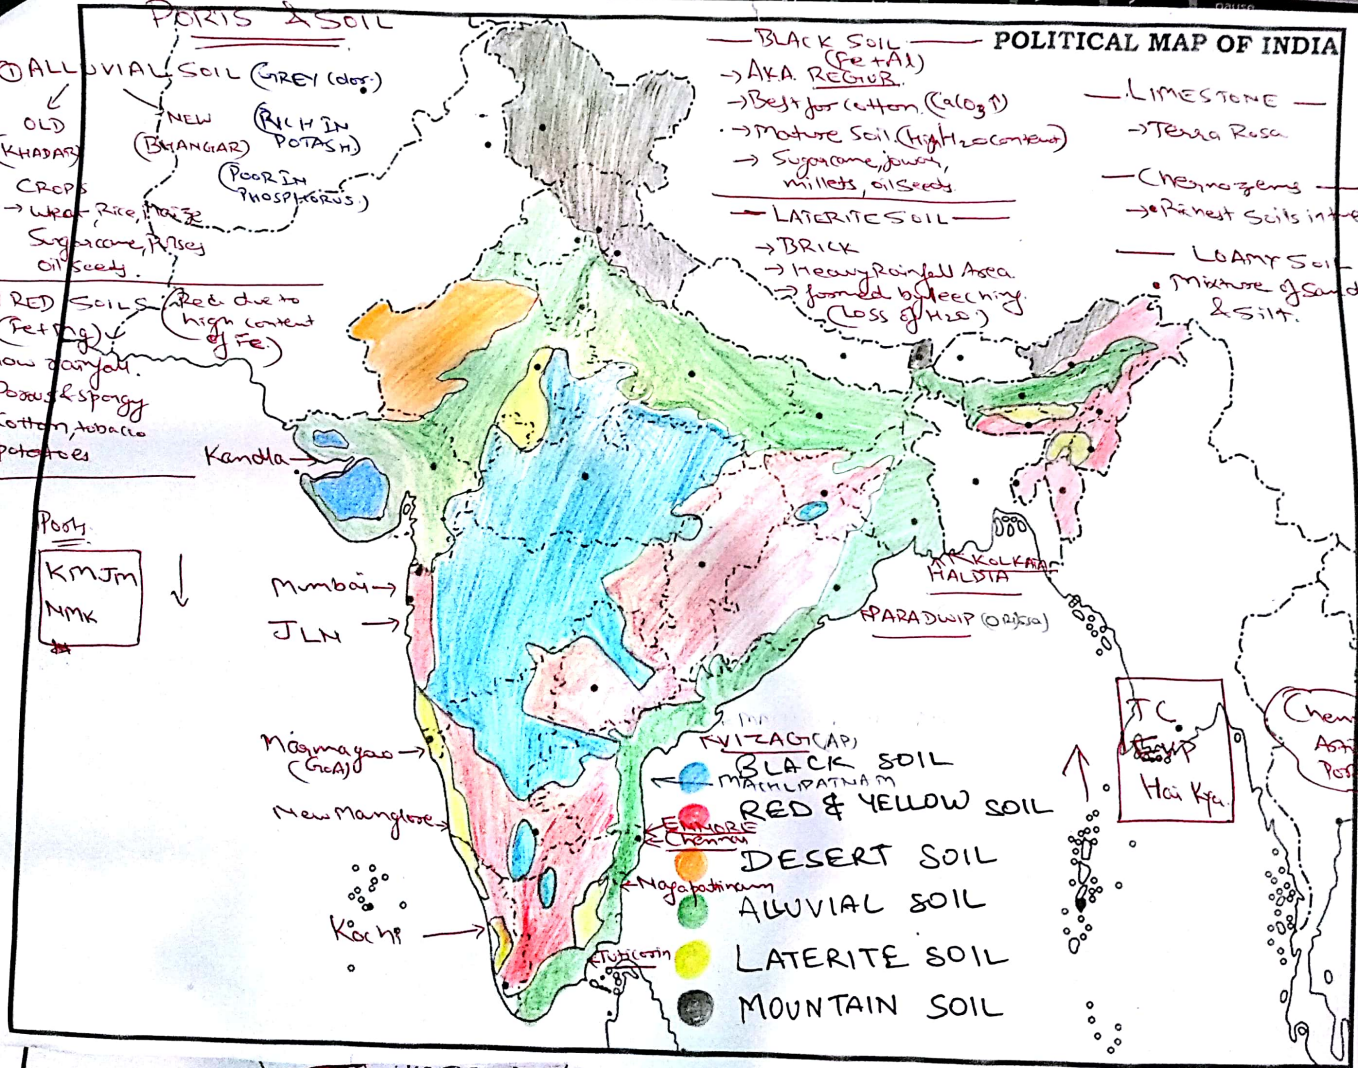 PORTS & SOIL
POLITICAL MAP OF INDIA
① ALLUVIAL SOIL (GREY Color.)
OLD
(KHADAR)
NEW
(BHANGAR)
(RICH IN
POTASH)
(POOR IN
PHOSPHORUS.)
CROPS
→ Wheat, Rice, Maize
Sugarcane, Pulses
Oil seeds.
RED SOILS
(Fe+Mg)
(Red due to
high content
of Fe.)
low rainfall.
Porous & Spongy
Cotton, tobacco
potatoes
BLACK SOIL
(Fe + Al)
→ AKA. REGUR
→ Best for Cotton. (CaCO3↑)
→ Mature Soil. (High H2O Content)
→ Sugarcane, jowar,
millets, oil Seeds.
LATERITE SOIL
→ BRICK
→ Heavy Rainfall Area.
→ formed by leeching.
(Loss of H2O.)
LIMESTONE
→ Terra Rosa
Chernozems
→ Richest Soils in the
LOAMY SOIL
Mixture of Sand
& Silt.
Ports
KMJM
NMK
Kandla
Mumbai
JLN
Marmagao
(GoA)
New Manglore
Kochi
KOLKATA
HALDIA
PARADWIP (ORissa)
VIZAG (AP)
MACHLIPATNAM
ENNORE
Chennai
Nagapattinam
Tuticorin
BLACK SOIL
RED & YELLOW SOIL
DESERT SOIL
ALLUVIAL SOIL
LATERITE SOIL
MOUNTAIN SOIL
TC
Hai Kya.
Chen
Port
pause